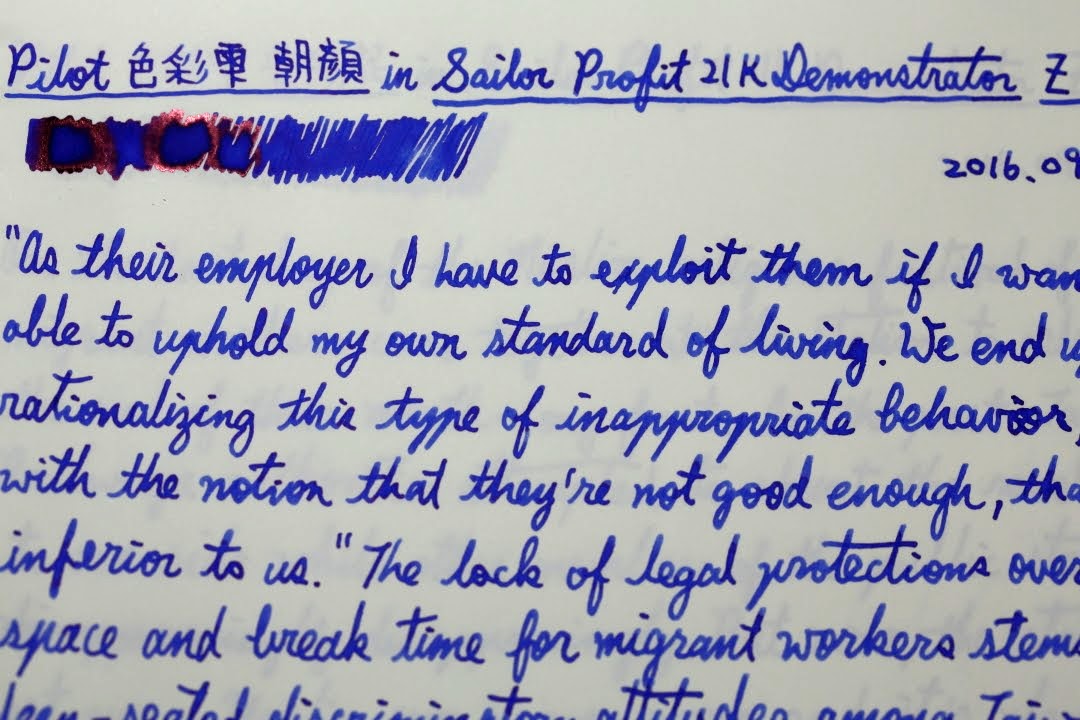 Pilot 色彩雫 朝顔 in Sailor Profit 21K Demonstrator Z
2016.09
"As their employer I have to exploit them if I wan
able to uphold my own standard of living. We end u
rationalizing this type of inappropriate behavior,
with the notion that they're not good enough, tha
inferior to us." The lack of legal protections over
space and break time for migrant workers stems
deep-seated discriminatory attitudes among